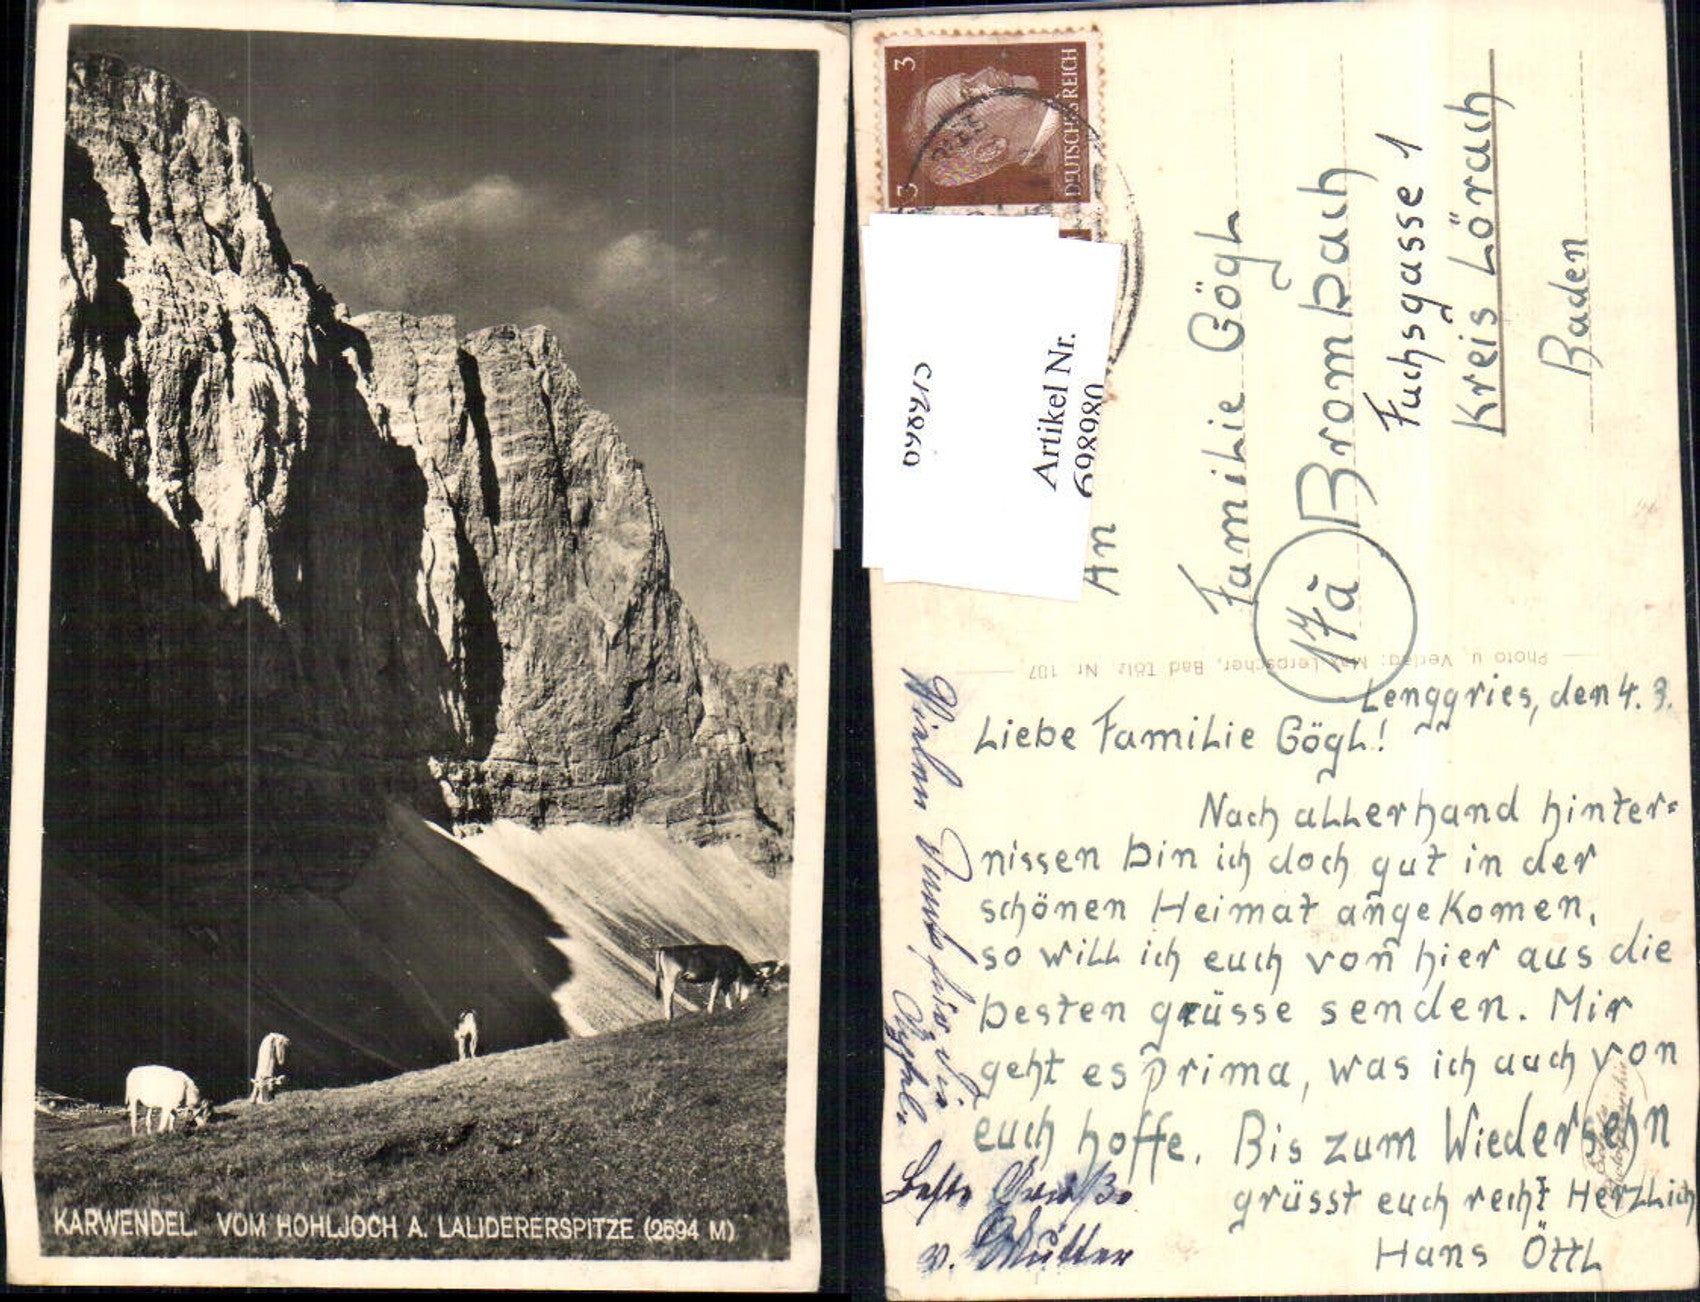 KARWENDEL. VOM HOHLJOCH A. LALIDERERSPITZE (2594 M)
3
3
DEUTSCHES REICH
Artikel Nr.
698980
An
Familie Gögl
17a Brombach
Fuchsgasse 1
Kreis Lörach
Baden
Photo u. Verlag: Max Lerpscher, Bad Tölz Nr. 107
Lenggries, den 4. 3.
Liebe Familie Gögl!
Nach allerhand hinter=
nissen bin ich doch gut in der
schönen Heimat angekomen,
so will ich euch von hier aus die
besten grüsse senden. Mir
geht es prima, was ich auch von
euch hoffe. Bis zum Wiedersehn
grüsst euch recht Herzlich
Hans Öttl
Vielen Dank für die
Beste Grüße
v. Mutter